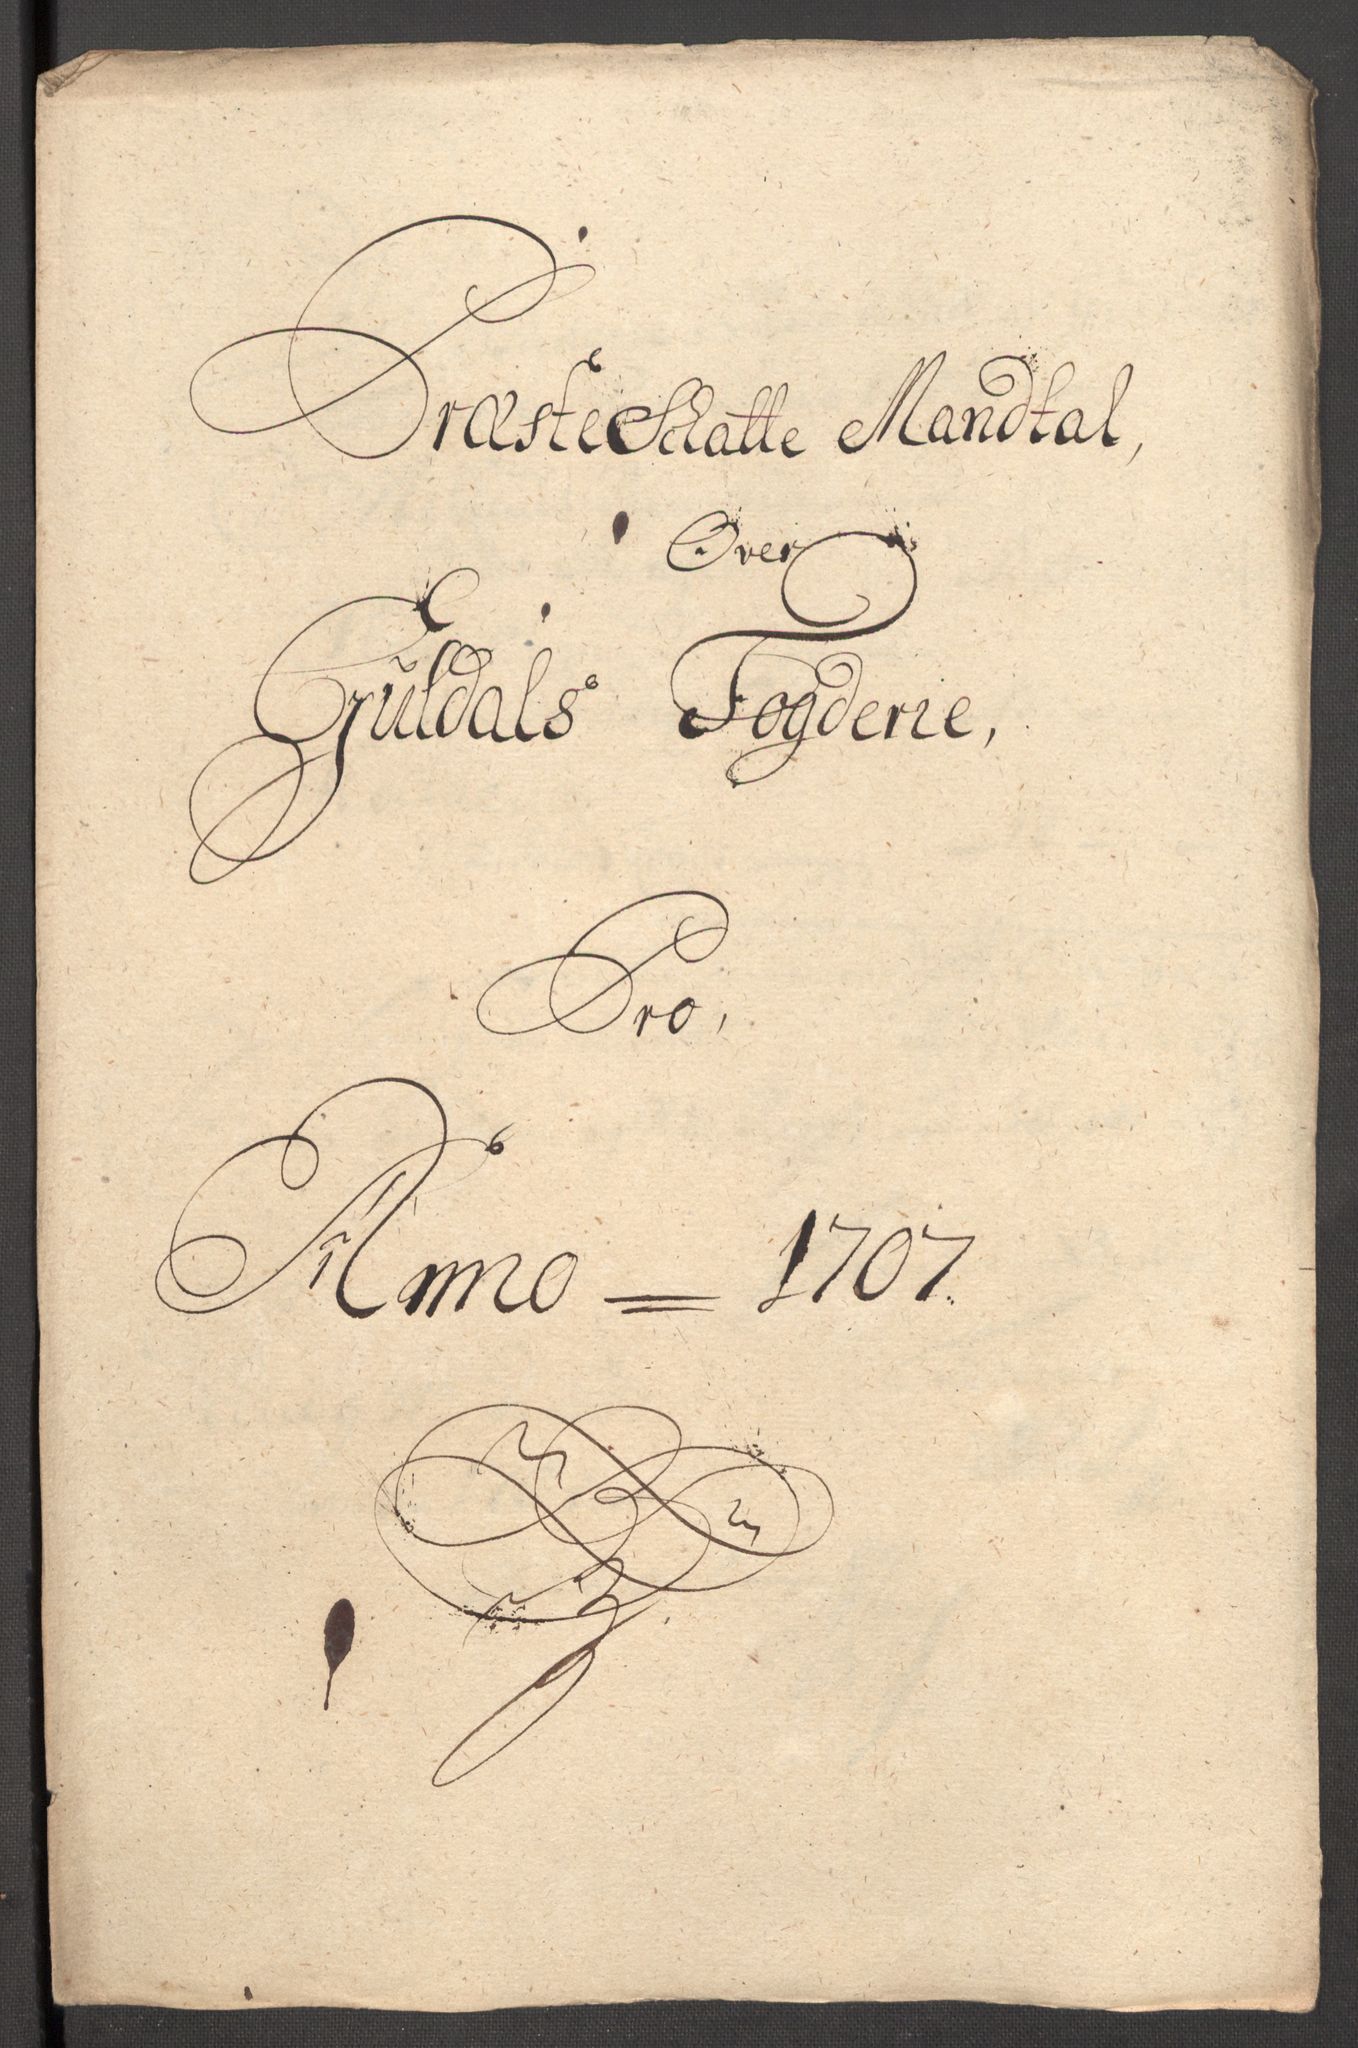 Præste Schatte Mandtal,
Over
Guldals Fogderie,
Pro,
Anno = 1707.